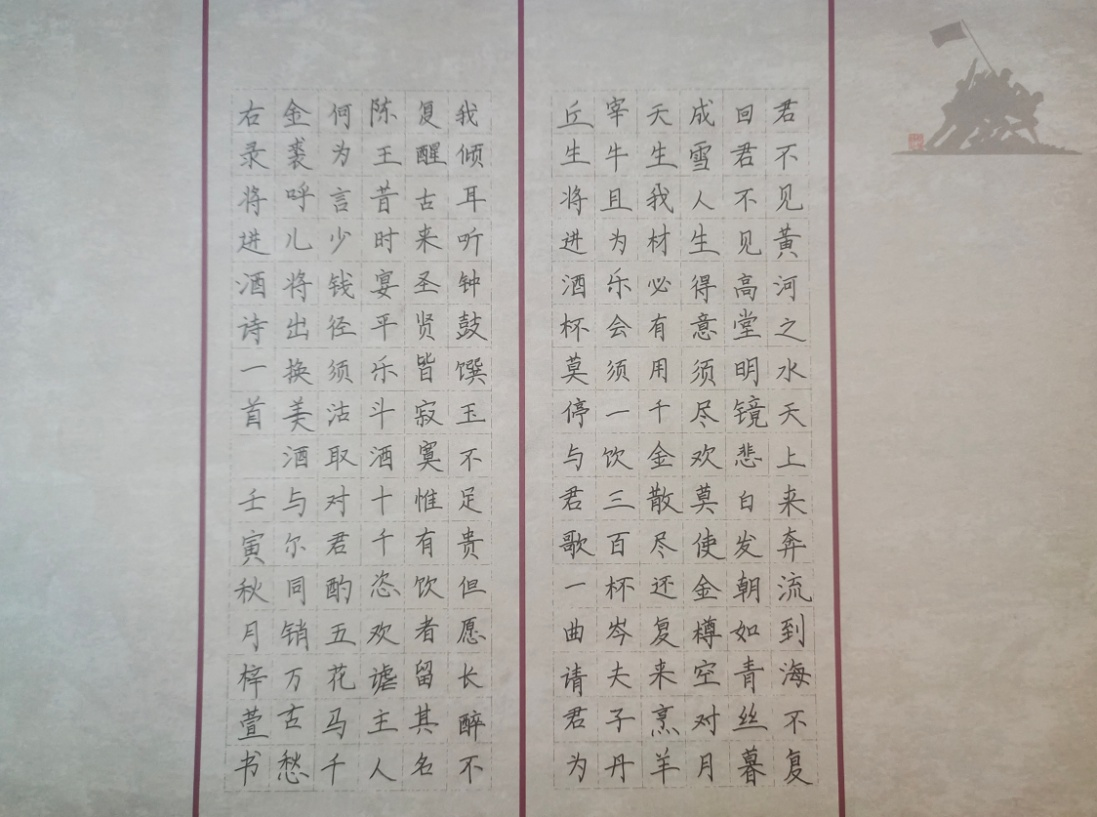 君不见黄河之水天上来奔流到海不复
回君不见高堂明镜悲白发朝如青丝暮
成雪人生得意须尽欢莫使金樽空对月
天生我材必有用千金散尽还复来烹羊
宰牛且为乐会须一饮三百杯岑夫子丹
丘生将进酒杯莫停与君歌一曲请君为
我倾耳听钟鼓馔玉不足贵但愿长醉不
复醒古来圣贤皆寂寞惟有饮者留其名
陈王昔时宴平乐斗酒十千恣欢谑主人
何为言少钱径须沽取对君酌五花马千
金裘呼儿将出换美酒与尔同销万古愁
右录将进酒诗一首 壬寅秋月梓萱书